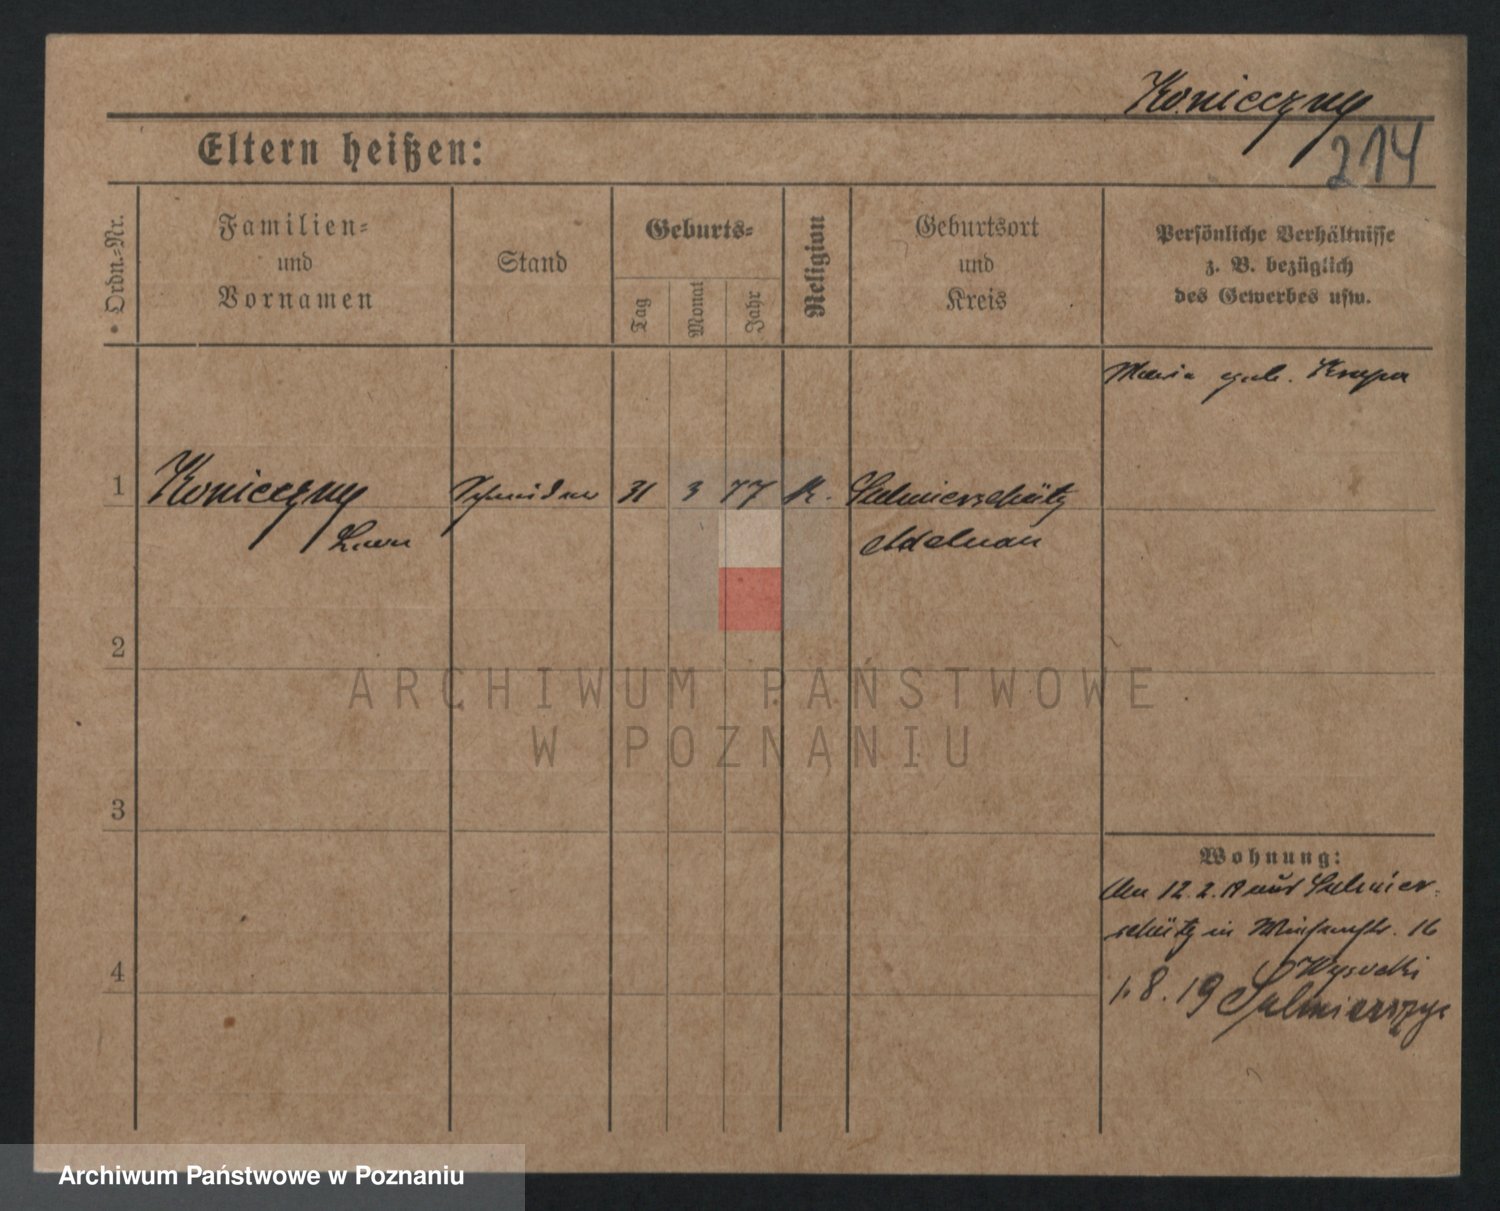 Konieczny
214
Eltern heißen:
Ordn.-Nr.
Familien-
und
Vornamen
Stand
Geburts-
Tag
Monat
Jahr
Religion
Geburtsort
und
Kreis
Persönliche Verhältnisse
z. B. bezüglich
des Gewerbes usw.
Maria geb. Krupa
1
Konieczny
Schneider
31
3
77
K.
Sulmierschütz
Adelnau
2
3
4
Wohnung:
Am 12.2.19 aus Sulmier-
schütz in 16
Wysocki
1.8.19 Sulmierzyc
ARCHIWUM PAŃSTWOWE
W POZNANIU
Archiwum Państwowe w Poznaniu